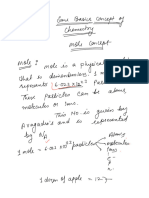 Some Basic Concept of
Chemistry
Mole Concept
Mole : mole is a physical
that is dimensionless. 1 mole
represents 6.022 × 10²³ Particles
These particles can be atoms
molecules or Ions.
This No. is given by
Avogadro's and is represented
by NA
1 mole = 6.022 × 10²³ particles
1 dozen of apple =